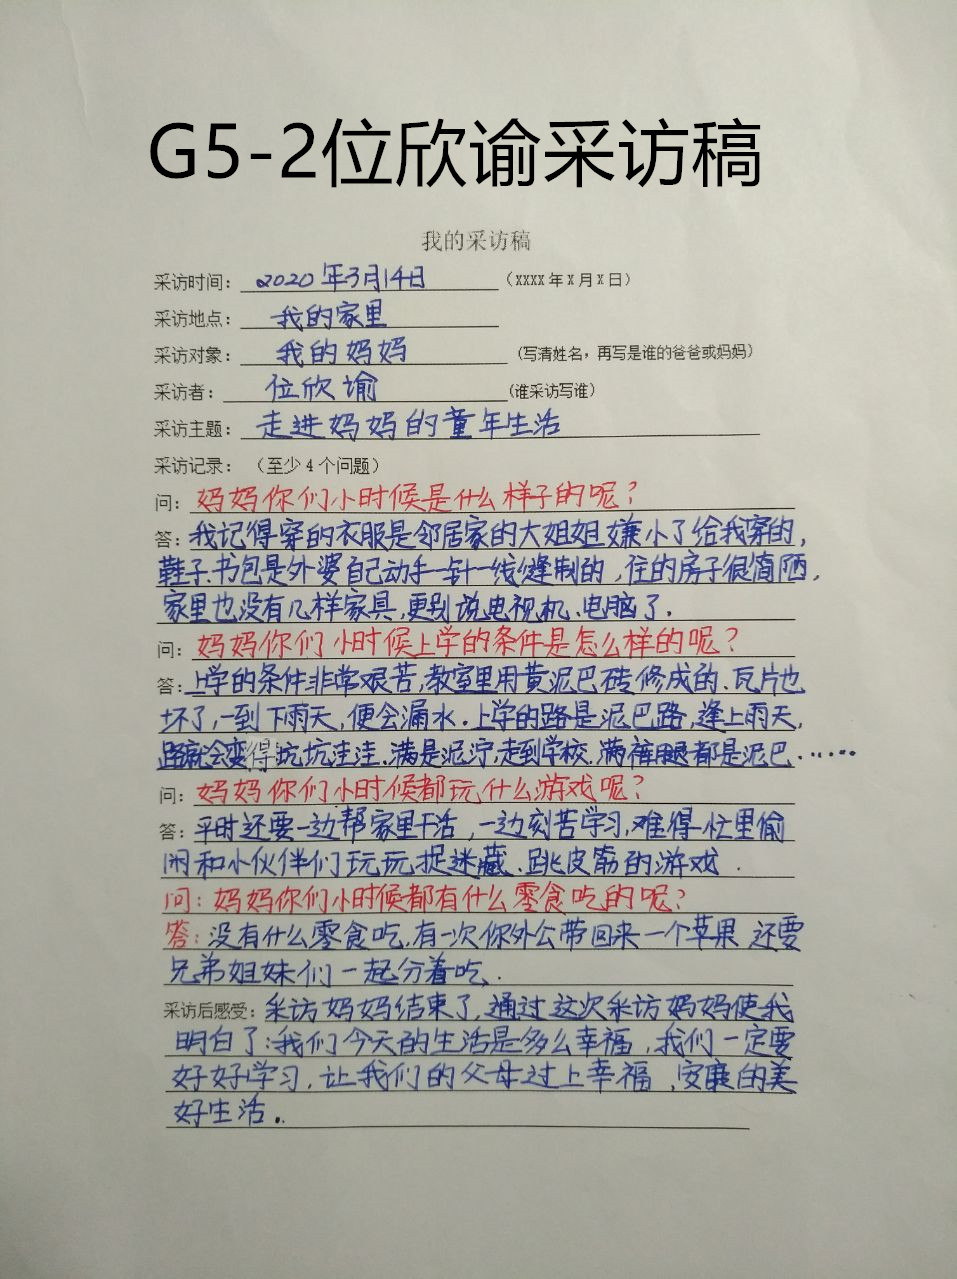 G5-2位欣谕采访稿
我的采访稿
采访时间：2020年3月14日（XXXX年X月X日）
采访地点：我的家里
采访对象：我的妈妈（写清姓名，再写是谁的爸爸或妈妈）
采访者：位欣谕（谁采访写谁）
采访主题：走进妈妈的童年生活
采访记录：（至少4个问题）
问：妈妈你们小时候是什么样子的呢？
答：我记得穿的衣服是邻居家的大姐姐嫌小了给我穿的，
鞋子、书包是外婆自己动手一针一线缝制的，住的房子很简陋，
家里也没有几样家具，更别说电视机、电脑了．
问：妈妈你们小时候上学的条件是怎么样的呢？
答：上学的条件非常艰苦，教室里用黄泥巴砖修成的、瓦片也
坏了，一到下雨天，便会漏水．上学的路是泥巴路，逢上雨天，
路就会变得坑坑洼洼、满是泥泞，走到学校，满裤腿都是泥巴······
问：妈妈你们小时候都玩什么游戏呢？
答：平时还要一边帮家里干活，一边刻苦学习，难得忙里偷
闲和小伙伴们玩玩捉迷藏、跳皮筋的游戏．
问：妈妈你们小时候都有什么零食吃的呢？
答：没有什么零食吃，有一次你外公带回来一个苹果 还要
兄弟姐妹们一起分着吃．
采访后感受：采访妈妈结束了，通过这次采访妈妈使我
明白了：我们今天的生活是多么幸福，我们一定要
好好学习，让我们的父母过上幸福、安康的美
好生活．